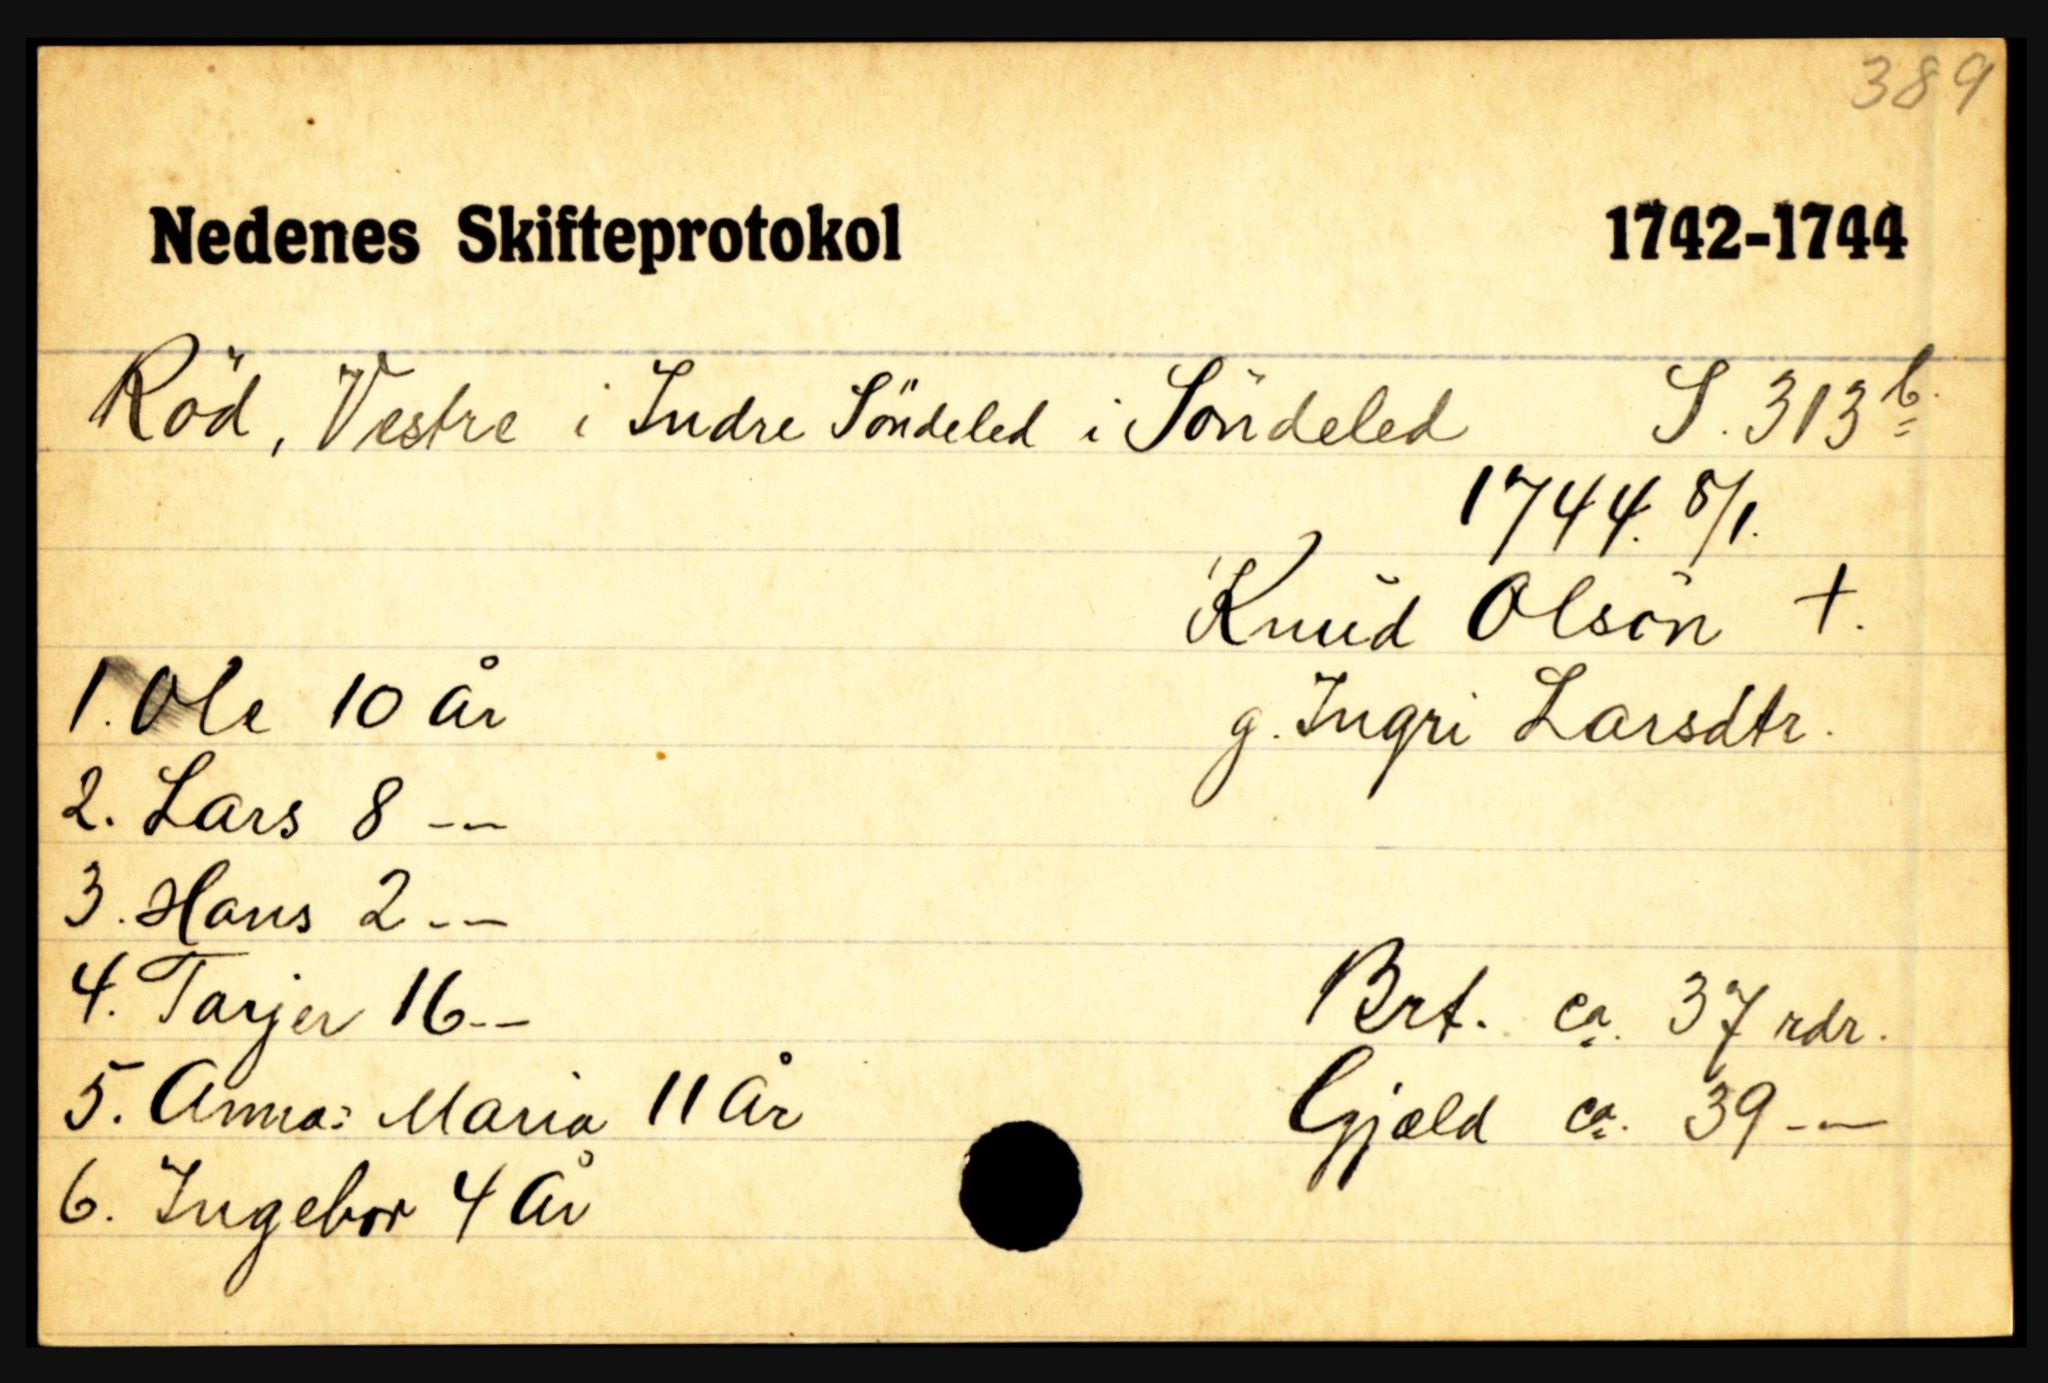 389
Nedenes Skifteprotokol 1742-1744
Röd, Vestre i Indre Söndeled i Söndeled S. 313 b.
1744. 8/1.
Knud Olsön +.
1. Ole 10 år g. Ingri Larsdtr.
2. Lars 8 --
3. Hans 2 --
4. Tarjer 16 -- Brt. ca. 37 rdr.
5. Anna: Maria 11 år Gjæld ca. 39 --
6. Ingebor 4 år